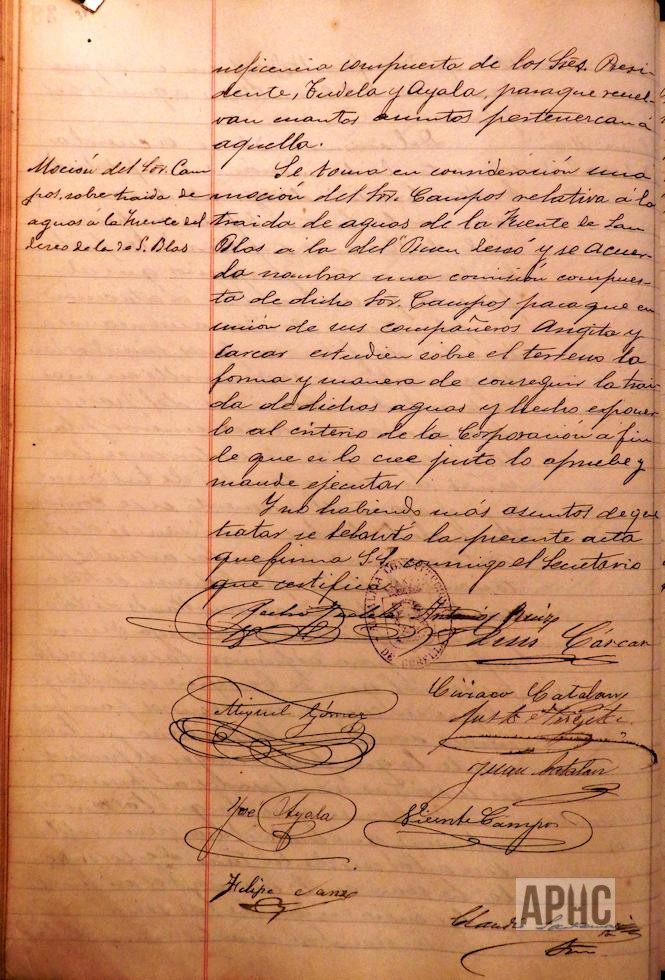 neficencia compuesta de los Sres. Presi-
dente, Tudela y Ayala, para que resuel-
van cuantos asuntos pertenezcan á
aquella.
Moción del Sor. Cam-
pos, sobre traida de
aguas á la Fuente del
deseo de la de S. Blas
Se toma en consideración una
moción del Sor. Campos relativa á la
traida de aguas de la Fuente de San
Blas a la del "Buen deseo" y se acuer-
da nombrar una comisión compues-
ta de dicho Sor. Campos para que en
unión de sus compañeros Angita y
Carcar estudien sobre el terreno la
forma y manera de conseguir la trai-
da de dichas aguas y hecho exponer-
lo al criterio de la Corporación a fin
de que si lo cree justo lo apruebe y
mande ejecutar
Y no habiendo más asuntos de que
tratar se lebantó la presente acta
que firma SS. conmigo el Secretario
que certifico.
Antonio Ruiz
Luis Cárcar
ALCALDIA CONSTITUCIONAL
DE CORELLA
Ciriaco Catalan
Miguel Gómez
Justo
Juan Catalan
José Ayala
Vicente Campos
Felipe Sanz
Claudio
APHC